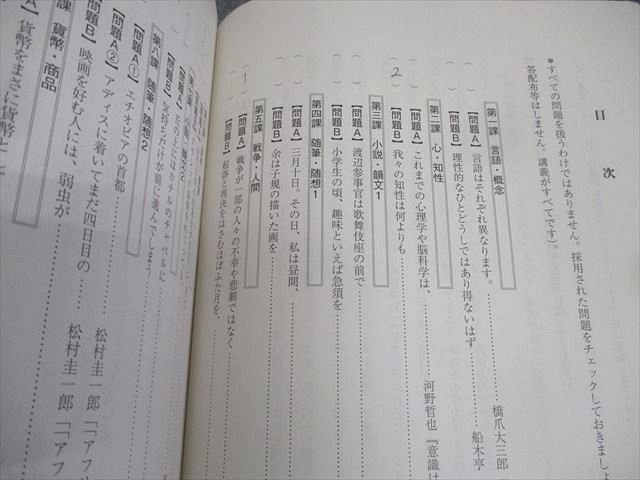 目次
*すべての問題を扱うわけではありません。採用された問題をチェックしておきましょ
答配布等はしません。講義がすべてです)。
第一課 言語・概念
【問題A】言語はそれぞれ異なります。 橋爪大三郎
【問題B】理性的なひとどうしではあり得ないはず 船木亨
第二課 心・知性
【問題A】これまでの心理学や脳科学は、 河野哲也『意識は
2 【問題B】我々の知性は何よりも
第三課 小説・韻文1
【問題A】渡辺参事官は歌舞伎座の前で
【問題B】小学生の頃、趣味といえば急須を
第四課 随筆・随想1
【問題A】三月十日。その日、私は昼間、
【問題B】余は子規の描いた画を
第五課 戦争・人間
1 【問題A】戦争が一部の人々の不幸や悲劇ではなく
【問題B】起訴と判決をはさむほぼふた月を、
丘の上にはホテルのチャペルに
気持ちだけが前に進んでしまう
第八課 随筆・随想2
【問題A①】エチオピアの首都
【問題A②】アディスに着いてまだ四日目の 松村圭一郎「「アフ
【問題B】映画を好む人には、弱虫が 松村圭一郎「「アフ
課 貨幣・商品
A】貨幣をまさに貨幣とし